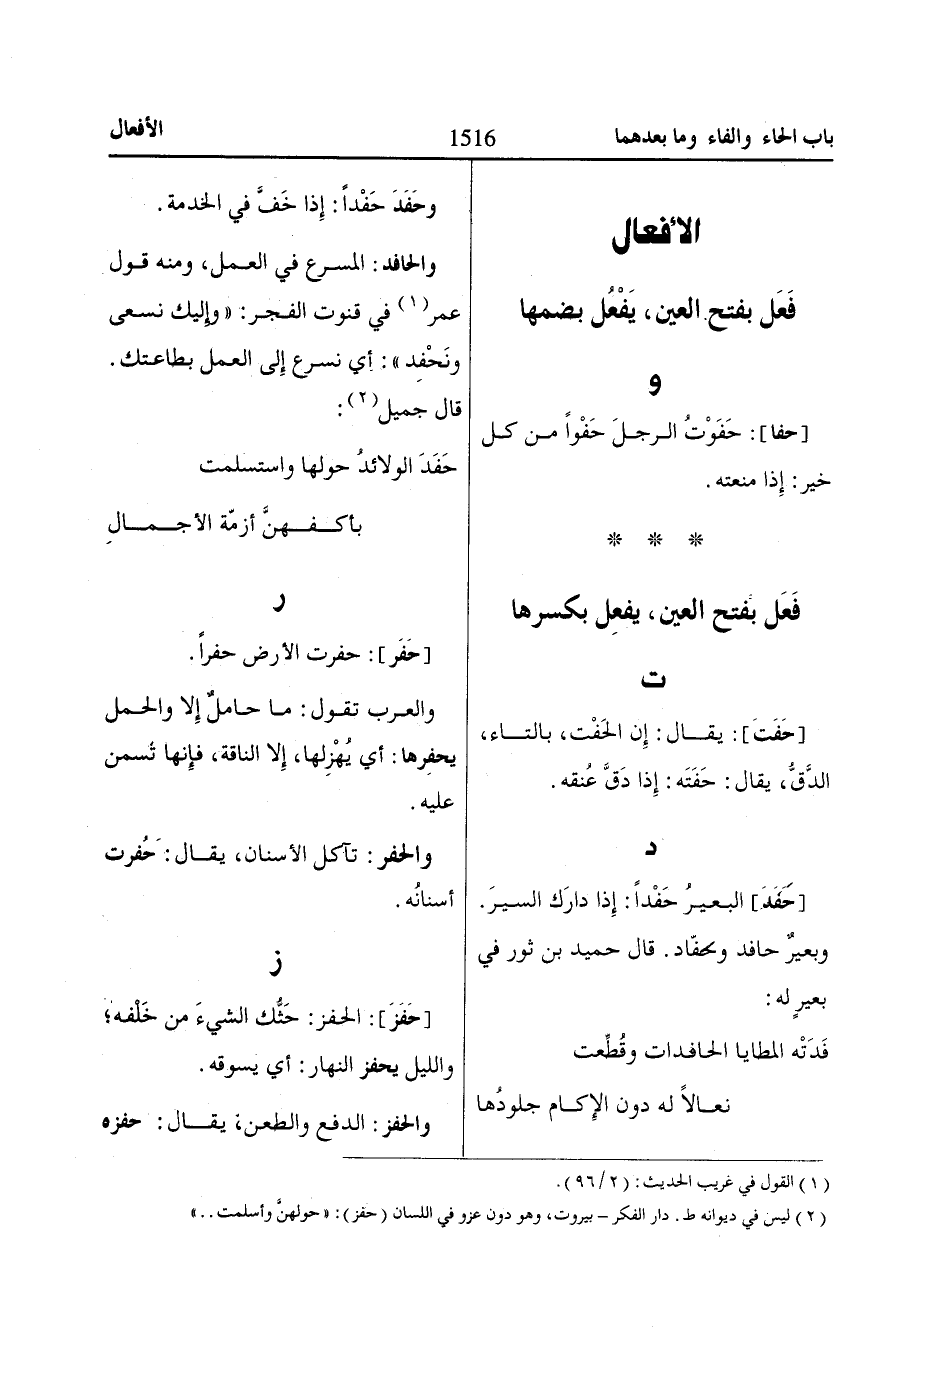 باب الحاء والفاء وما بعدهما 1516 الأفعال
الأفعال
فَعَل بفتح العين، يَفْعُل بضمها
و
[حفا]: حَفَوْتُ الرجلَ حَفْواً من كل
خير: إذا منعته.
* * *
فَعَل بفتح العين، يفعِل بكسرها
ت
[حَفَتَ]: يقال: إن الحَفْت، بالتاء،
الدَّقُّ، يقال: حَفَتَه: إذا دَقَّ عُنقه.
د
[حَفَدَ] البعيرُ حَفْداً: إذا دارَك السيرَ.
وبعيرٌ حافد وحفّاد. قال حميد بن ثور في
بعيرٍ له:
فَدَتْه المطايا الحافدات وقُطِّعت
نعالاً له دون الإكام جلودُها
وحَفَدَ حَفْداً: إذا خَفَّ في الخدمة.
والحافد: المسرع في العمل، ومنه قول
عمر(١) في قنوت الفجر: «وإليك نسعى
ونَحْفِد»: أي نسرع إلى العمل بطاعتك.
قال جميل(٢):
حَفَدَ الولائدُ حولها واستسلمت
بأكفهنَّ أزمّة الأجمالِ
ر
[حَفَر]: حفرت الأرض حفراً.
والعرب تقول: ما حاملٌ إلا والحمل
يحفِرها: أي يُهْزِلها، إلا الناقة، فإنها تُسمن
عليه.
والحفر: تآكل الأسنان، يقال: حُفرت
أسنانُه.
ز
[حَفَزَ]: الحفز: حَثُّك الشيءَ من خَلْفه؛
والليل يحفز النهار: أي يسوقه.
والحفز: الدفع والطعن، يقال: حفزه
(١) القول في غريب الحديث: (٩٦/٢).
(٢) ليس في ديوانه ط. دار الفكر – بيروت، وهو دون عزو في اللسان (حفز): «حولهنَّ وأسلمت..»